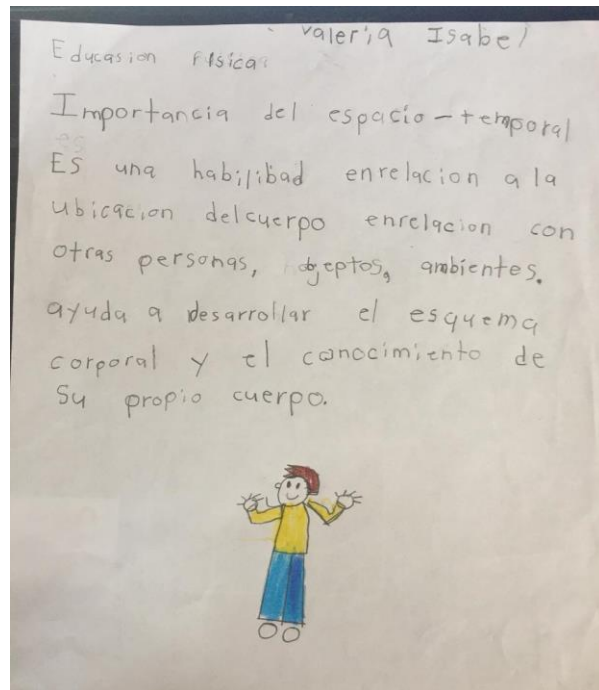 Valeria Isabel
Educasion Fisica:
Importancia del espacio-temporal
ES una habilibad enrelacion a la
ubicacion delcuerpo enrelacion con
otras personas, objeptos, ambientes.
ayuda a desarrollar el esquema
corporal y el conocimiento de
Su propio cuerpo.